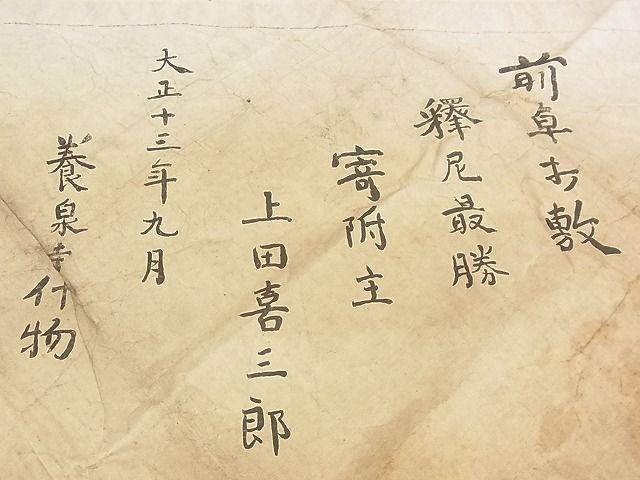 前卓打敷
釋尼最勝
寄附主
上田喜三郎
大正十三年九月
養泉寺什物